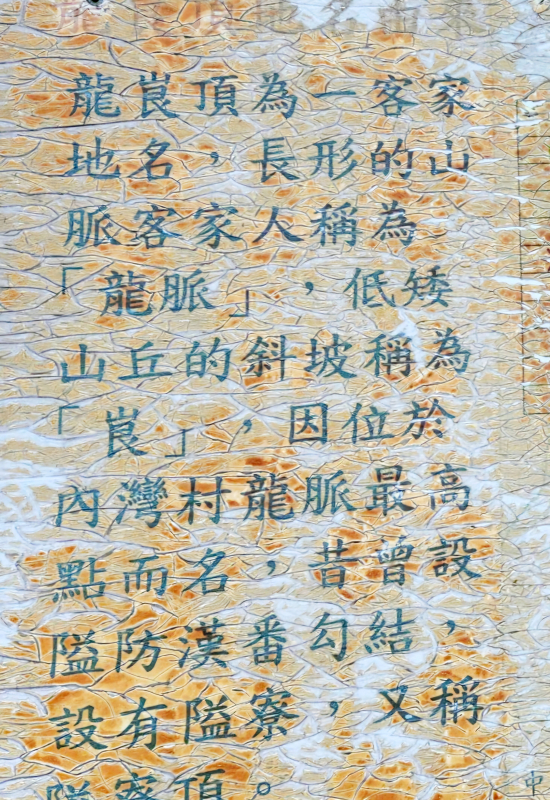 龍崀頂地名由來
龍崀頂為一客家
地名，長形的山
脈客家人稱為
「龍脈」，低矮
山丘的斜坡稱為
「崀」，因位於
內灣村龍脈最高
點而名，昔曾設
隘防漢番勾結，
設有隘寮，又稱
隘寮頂。
中